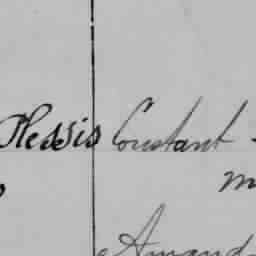 Plessis Constant
m
Amand